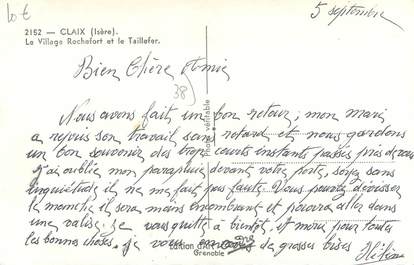 lot
5 septembre
2152 — CLAIX (Isère).
Le Village Rochefort et le Taillefer.
Bien Chère Amie
38
Nous avons fait un bon retour; mon mari
a repris son travail sans retard et nous gardons
un bon souvenir des trop courts instants passés près de vous
J'ai oublié mon parapluie devant votre porte, soyez sans
inquiétude il ne me fait pas faute. Vous pouvez dévisser
le manche il sera moins encombrant et pourra aller dans
une valise. Je vous quitte à bientôt, et merci pour toutes
les bonnes choses. Je vous de grosses bises Hélène
Photo véritable
Edition d'Art
Grenoble